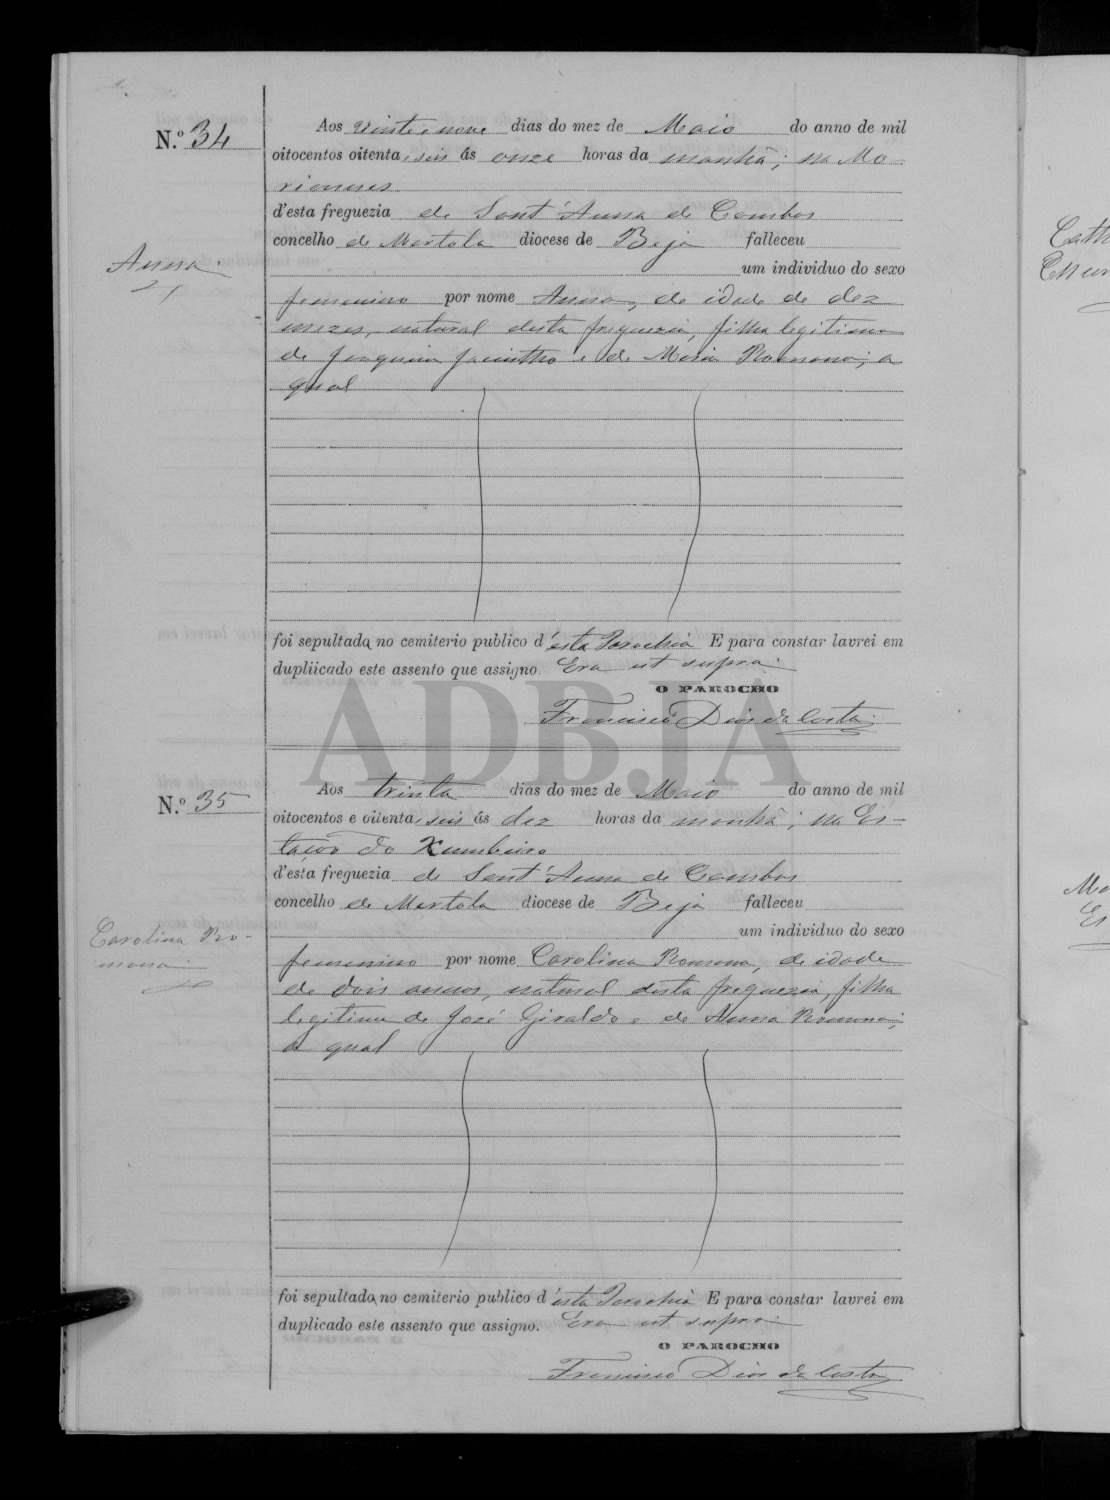 N.º 34
Anna.
Aos vinte e nove dias do mez de Maio do anno de mil
oitocentos oitenta e seis ás onze horas da manhã; na Mo-
d'esta freguezia de Sant'Anna de Cambas
concelho de Mertola diocese de Beja falleceu
um individuo do sexo
femenino por nome Anna, de idade de dez
mezes, natural desta freguezia, filha legitima
de Joaquim Jacintho e de Maria Romana; a
qual
foi sepultada no cemiterio publico d'esta Parochia E para constar lavrei em
dupliicado este assento que assigno. Era ut supra.
O PAROCHO
Francisco Dias da Costa.
ADBJA
N.º 35
Carolina Ro-
mana
Aos trinta dias do mez de Maio do anno de mil
oitocentos e oitenta e seis ás dez horas da manhã; na Es-
tação do
d'esta freguezia de Sant'Anna de Cambas
concelho de Mertola diocese de Beja falleceu
um individuo do sexo
femenino por nome Carolina Romana, de idade
de dois annos, natural desta freguezia, filha
legitima de José Giraldo e de Anna Romana;
a qual
foi sepultada no cemiterio publico d'esta Parochia E para constar lavrei em
duplicado este assento que assigno. Era ut supra.
O PAROCHO
Francisco Dias da Costa